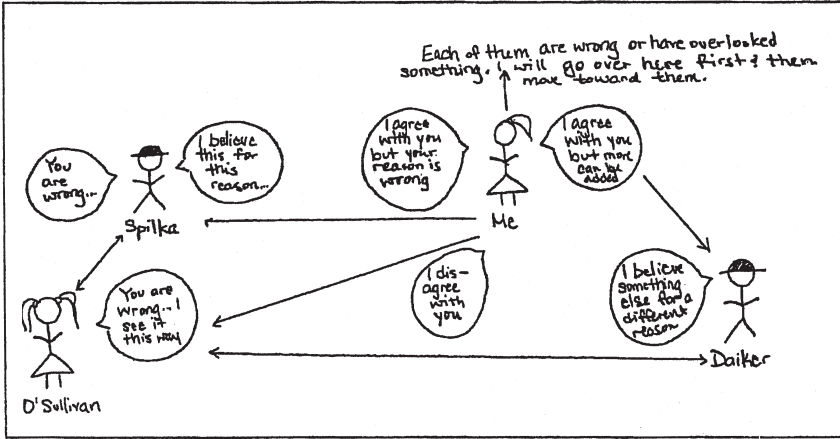 Each of them are wrong or have overlooked
something. I will go over here first & them
move toward them.
You
are
wrong...
I believe
this for
this
reason...
Spilka
I agree
with you
but your
reason is
wrong
I agree
with you
but more
can be
added
Me
I dis-
agree
with
you
I believe
something
else for a
different
reason
Daiker
You are
wrong...I
see it
this way
O'Sullivan